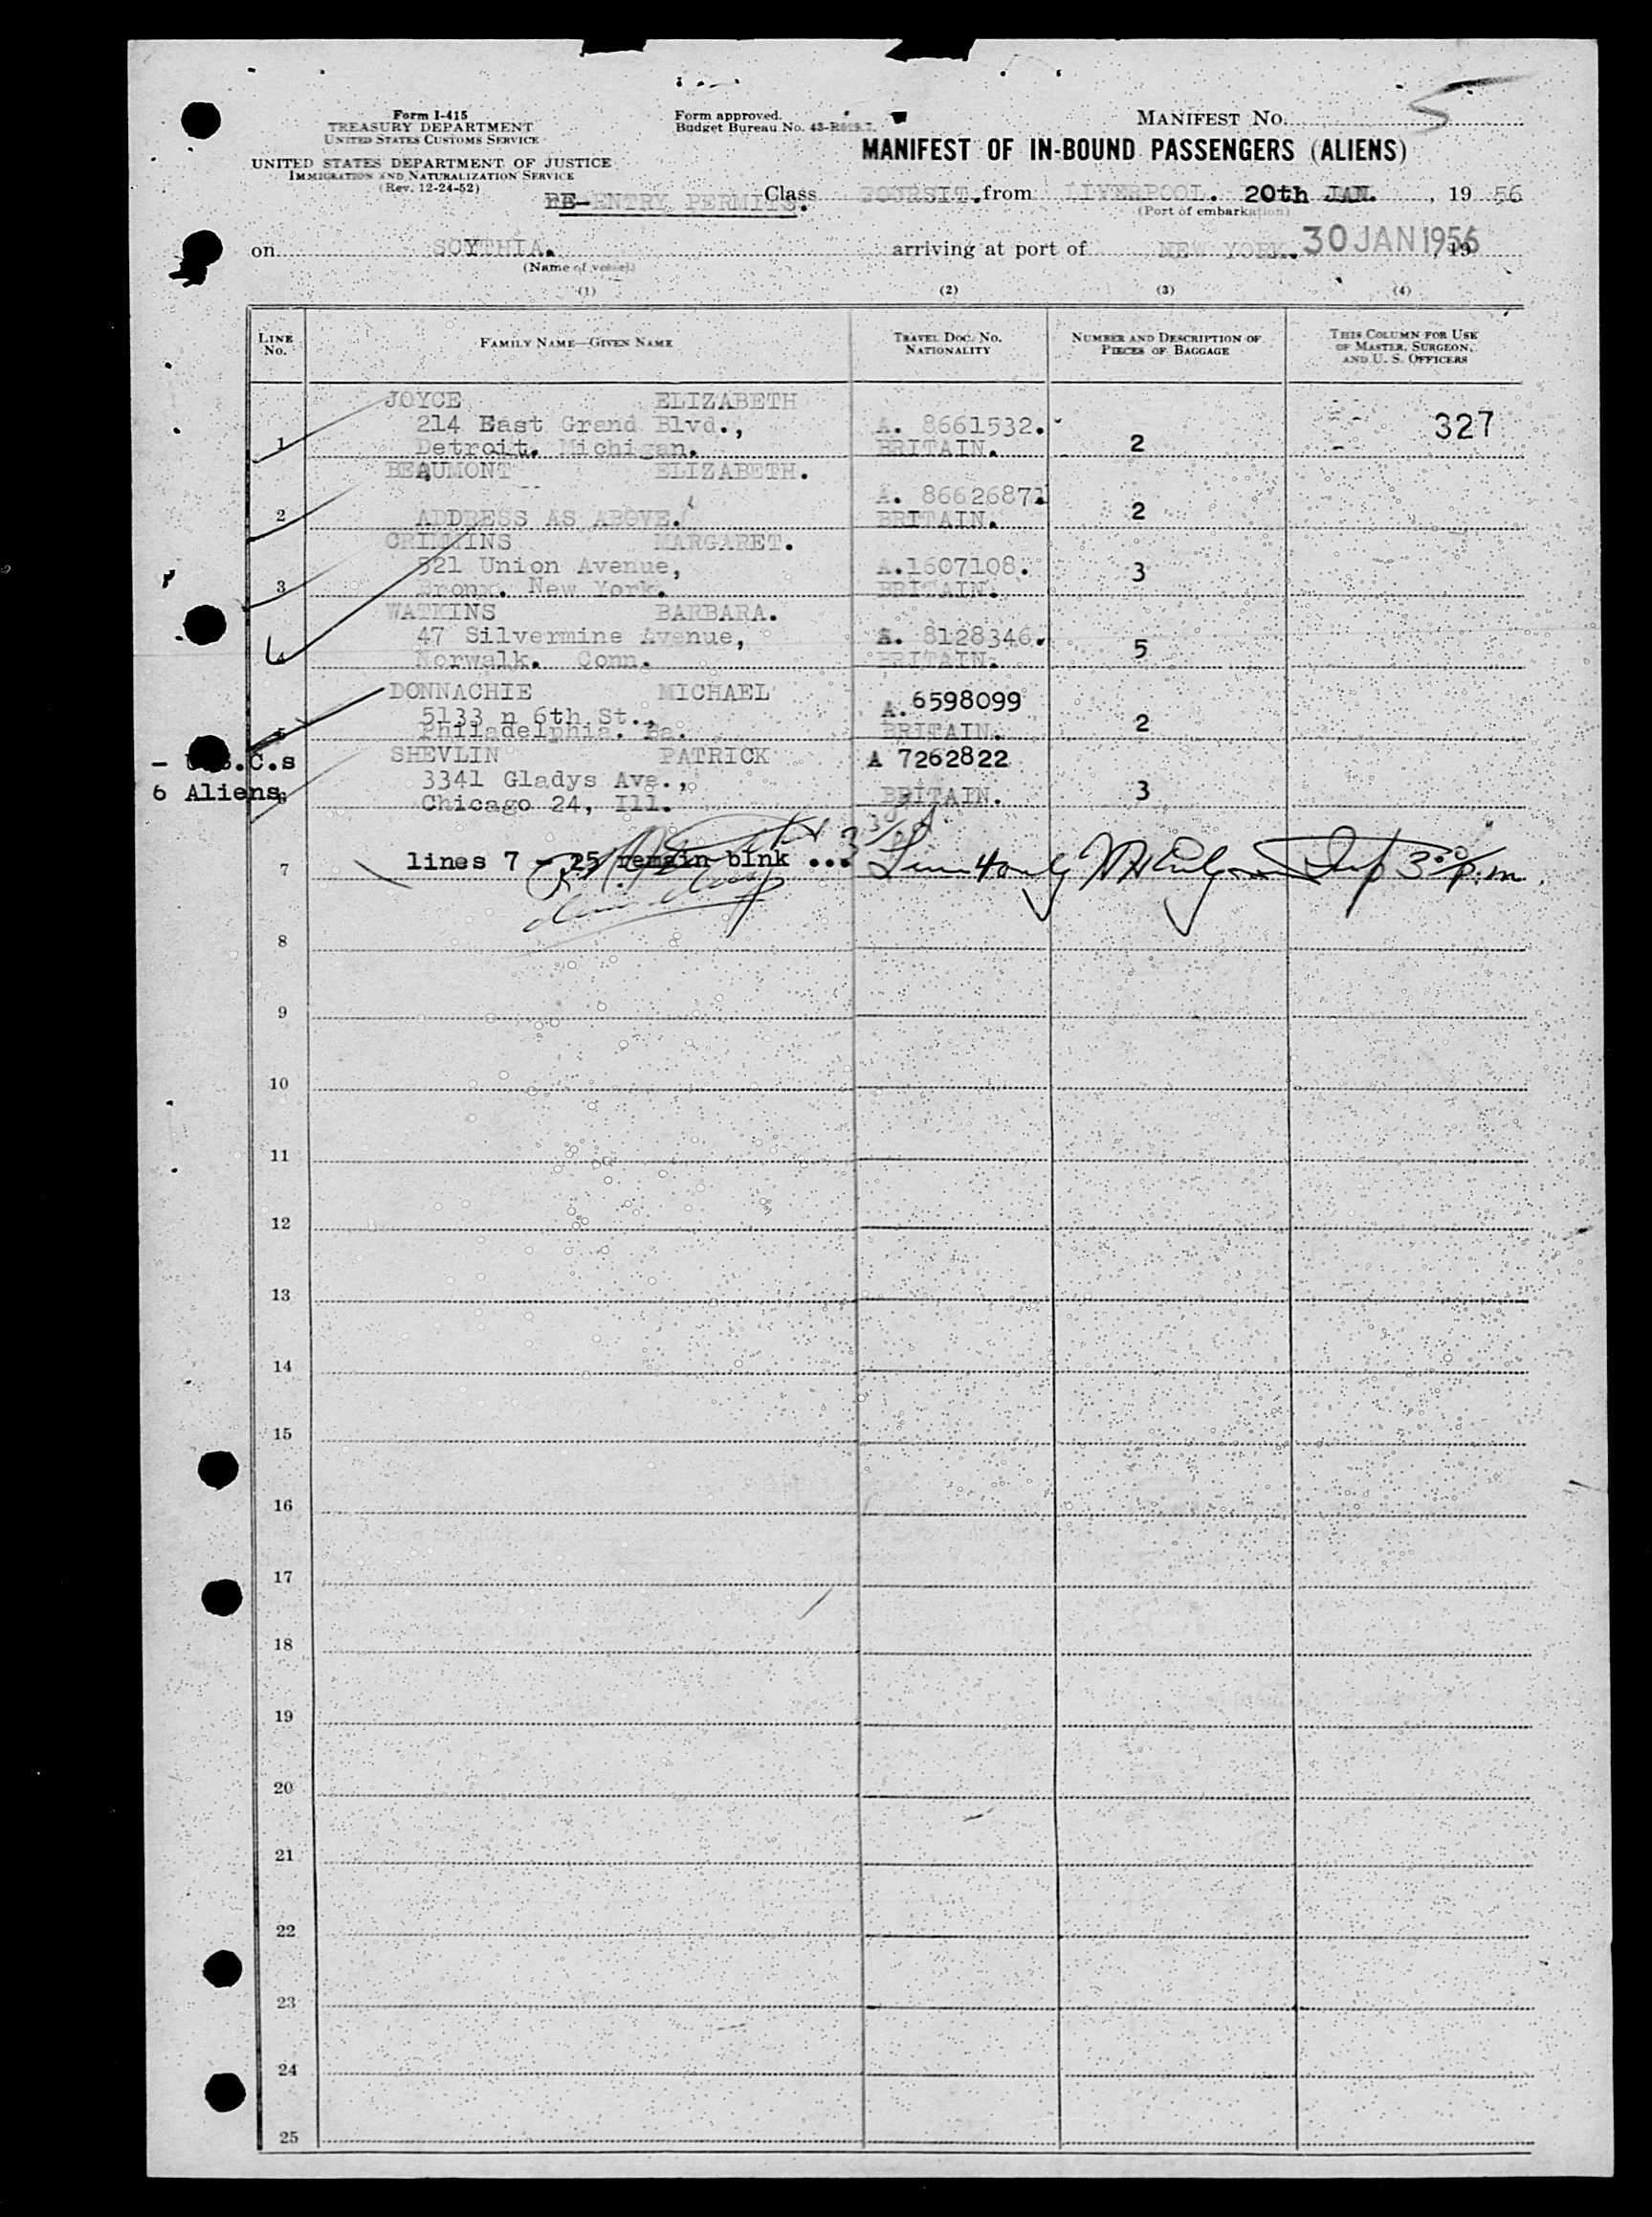 Form I-415
TREASURY DEPARTMENT
UNITED STATES CUSTOMS SERVICE
UNITED STATES DEPARTMENT OF JUSTICE
IMMIGRATION AND NATURALIZATION SERVICE
(Rev. 12-24-52)
Form approved.
Budget Bureau No. 43-
MANIFEST No. 5
MANIFEST OF IN-BOUND PASSENGERS (ALIENS)
RE-ENTRY PERMITS. Class from LIVERPOOL. 20th JAN. , 19 56
(Port of embarkation)
on SCYTHIA. arriving at port of NEW YORK. 30 JAN 1956 19
(Name of vessel)
(1) (2) (3) (4)
LINE No. FAMILY NAME—GIVEN NAME TRAVEL DOC. No. NATIONALITY NUMBER AND DESCRIPTION OF PIECES OF BAGGAGE THIS COLUMN FOR USE OF MASTER, SURGEON, AND U. S. OFFICERS
JOYCE ELIZABETH
214 East Grand Blvd., A. 8661532. 327
1 Detroit. Michigan. BRITAIN. 2
BEAUMONT ELIZABETH.
A. 86626871
2 ADDRESS AS ABOVE. BRITAIN. 2
CRIMMINS MARGARET.
521 Union Avenue, A.1607108. 3
3 Bronx. New York. BRITAIN.
WATKINS BARBARA.
47 Silvermine Avenue, A. 8128346. 5
4 Norwalk. Conn. BRITAIN.
DONNACHIE MICHAEL A. 6598099
5133 n 6th St.,
5 Philadelphia. Pa. BRITAIN. 2
- U.S.C.s SHEVLIN PATRICK A 7262822
3341 Gladys Ave.,
6 Aliens 6 Chicago 24, Ill. BRITAIN. 3
7 lines 7 - 25 remain blnk ... 3 00 p.m.
8
9
10
11
12
13
14
15
16
17
18
19
20
21
22
23
24
25